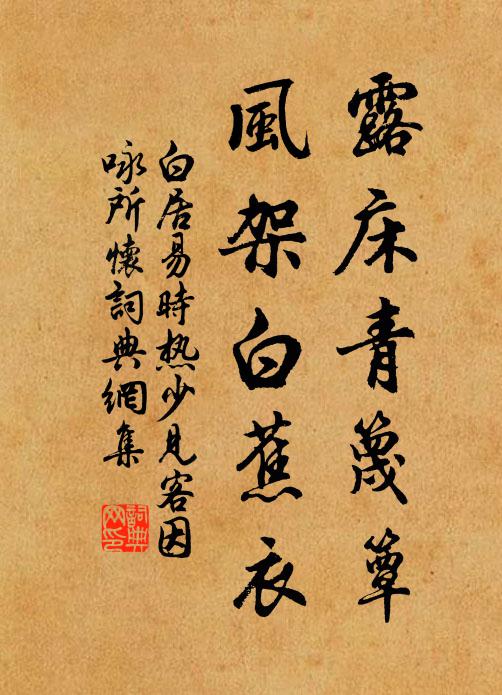 露床青篾簟
風架白蕉衣
白居易時熱少見客因
咏所懷詞典網集
詞典網印